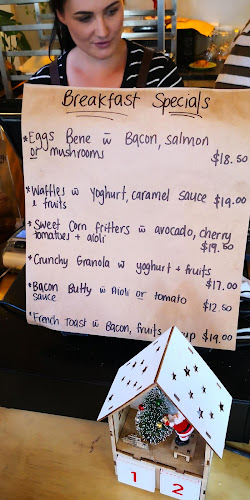 Breakfast Specials
*Eggs Bene w̄ Bacon, salmon
or mushrooms $18.50
*Waffles w̄ Yoghurt, caramel sauce $19.00
& fruits
*Sweet Corn fritters w̄ avocado, cherry
tomatoes + aioli $19.50
*Crunchy Granola w̄ yoghurt + fruits
$17.00
*Bacon Butty w̄ Aioli or tomato
sauce $12.50
*French Toast w̄ Bacon, fruits $19.00
1 2